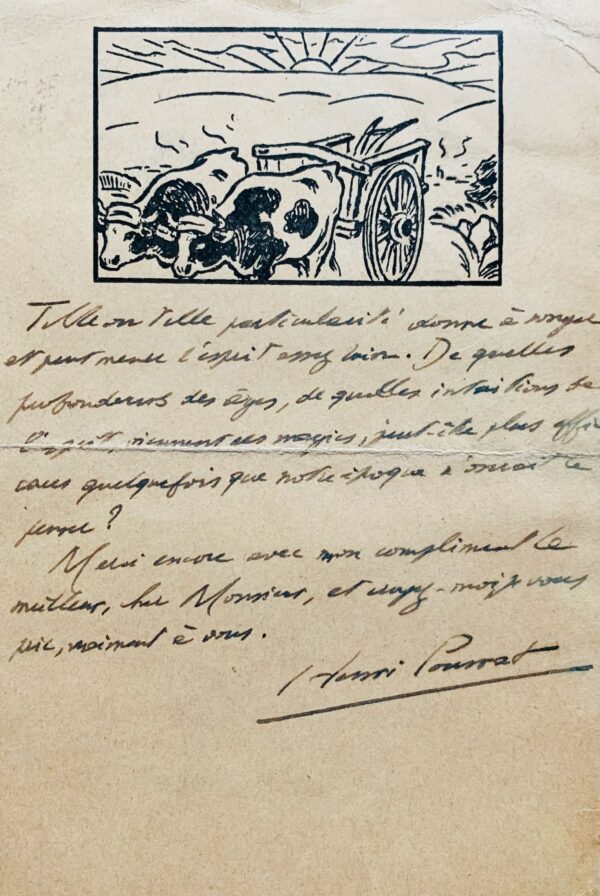 Telle ou telle particularité donne à songer
et peut mener l'esprit assez loin. De quelles
profondeurs des âges, de quelles intuitions de
l'esprit, viennent ces magies, peut-être plus effi-
caces quelquefois que notre époque n'oserait le
penser ?
Merci encore avec mon compliment le
meilleur, cher Monsieur, et croyez-moi je vous
prie, vraiment à vous.
Henri Pourrat